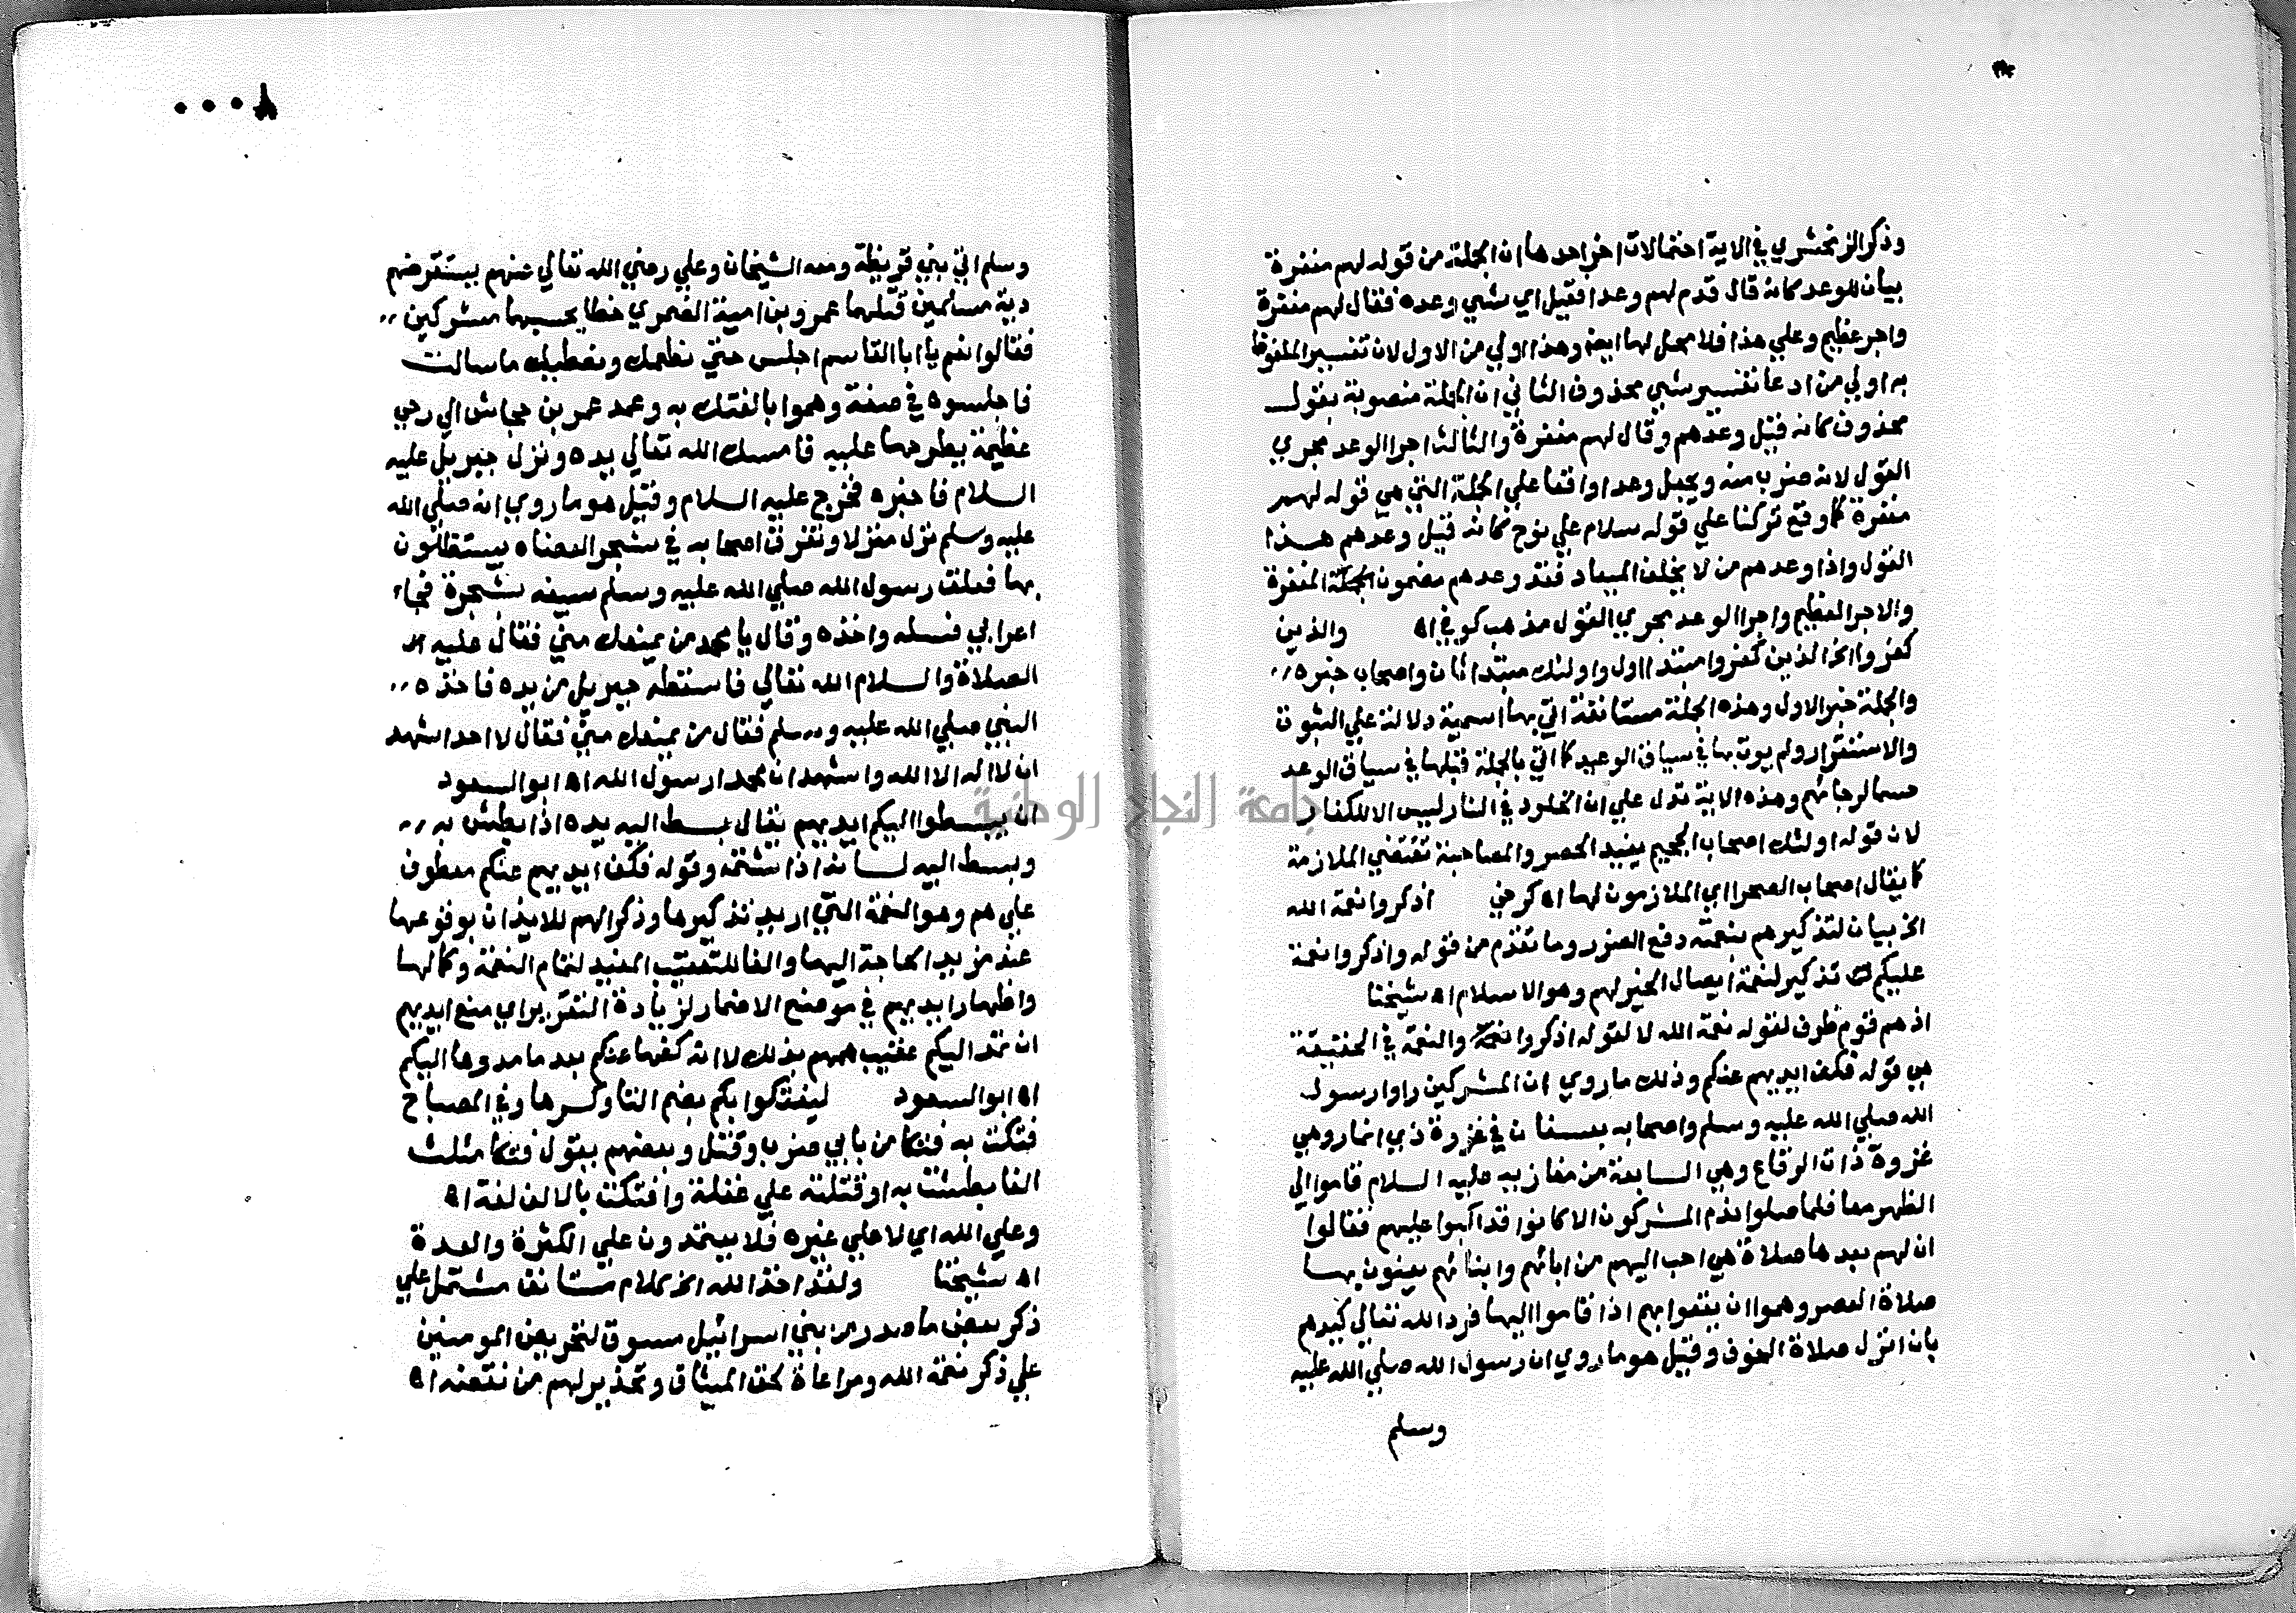 وذكر الزمخشري في الاية احتمالات اخر احدها ان الجملة من قوله لهم مغفرة
بيان للوعد كانه قال قدم لهم وعدا فقيل اي شي وعده فقال لهم مغفرة
واجر عظيم وعلي هذا فلا محل لها ايضا وهذا اولي من الاول لان تفسير الملفوظ
به اولي من ادعا تفسير شي محذوف الثاني ان الجملة منصوبة بقول
محذوف كانه قيل وعدهم وقال لهم مغفرة والثالث اجرا الوعد مجري
القول لانه ضرب منه ويجعل وعد اواقعا علي الجملة التي هي قوله لهم
مغفرة كما وقع تركنا علي قوله سلام علي نوح كانه قيل وعدهم هذا
القول واذا وعدهم من لا يخلف الميعاد فقد وعدهم مضمون الجملة المغفرة
والاجر العظيم واجرا الوعد مجري القول مذهب كوفي اه والذين
كفروا الخ الذين كفروا مبتدا اول واولئك مبتدا ثان واصحاب خبره
والجملة خبر الاول وهذه الجملة مستانفة اتي بها اسمية دلالة علي الثبوت
والاستقرار ولم يوت بها في سياق الوعيد كما اتي بالجملة قبلها في سياق الوعد
حسما لرجائهم وهذه الاية تدل علي ان الخلود في النار ليس الا للكفار
لان قوله اولئك اصحاب الجحيم يفيد الحصر والمصاحبة تقتضي الملازمة
كما يقال اصحاب الصحرا اي الملازمون لها اه كرخي اذكروا نعمة الله
الخ بيان لتذكيرهم بنعمة دفع الضرر وما تقدم من قوله واذكروا نعمة
عليكم تذكير لنعمة ايصال الخير لهم وهو الاسلام اه شيخنا
اذ هم قوم ظرف لقوله نعمة الله لا لقوله اذكروا نعمة والنعمة في الحقيقة
هي قوله فكف ايديهم عنكم وذلك ما روي ان المشركين راوا رسول
الله صلي الله عليه وسلم واصحابه بعسفان في غزوة ذي انمار وهي
غزوة ذات الرقاع وهي السابعة من مغازيه عليه السلام قاموا الي
الظهر معا فلما صلوا ندم المشركون الا كانوا قد اكبوا عليهم فقالوا
ان لهم بعدها صلاة هي احب اليهم من ابائهم وابنائهم يعنون بها
صلاة العصر وهموا ان يقعوا بهم اذا قاموا اليها فرد الله تعالي كيدهم
بان انزل صلاة الخوف وقيل هو ما روي ان رسول الله صلي الله عليه
وسلم
وسلم اتي بني قريظة ومعه الشيخان وعلي رضي الله تعالي عنهم يستقرضهم
دية مسلمين قتلهما عمرو بن امية الضمري خطا يحسبهما مشركين
فقالوا نعم يا ابا القاسم اجلس حتي نطعمك ونعطيك ما سالت
فاجلسوه في صفة وهموا بالفتك به وعمد عمر بن جحاش الي رحي
عظيمة يطرحها عليه فامسك الله تعالي يده ونزل جبريل عليه
السلام فاخبره فخرج عليه السلام وقيل هو ما روي انه صلي الله
عليه وسلم نزل منزلا وتفرق اصحابه في شجر العضاه يستظلون
بها فعلق رسول الله صلي الله عليه وسلم سيفه بشجرة فجاء
اعرابي فسله واخذه وقال يا محمد من يمنعك مني فقال عليه
الصلاة والسلام الله تعالي فاسقطه جبريل من يده فاخذه
النبي صلي الله عليه وسلم فقال من يمنعك مني فقال لا احد اشهد
ان لا اله الا الله واشهد ان محمدا رسول الله اه ابو السعود
ان يبسطوا اليكم ايديهم يقال بسط اليه يده اذا بطش به
وبسط اليه لسانه اذا شتمه وقوله فكف ايديهم عنكم معطوف
علي هم وهو النعمة التي اريد تذكيرها وذكر الهم للايذان بوقوعها
عند مزيد الحاجة اليها والفا للتعقيب المفيد لتمام النعمة وكمالها
واظهار ايديهم في موضع الاضمار لزيادة التقرير اي منع ايديهم
ان تمتد اليكم عقيب همهم بذلك لا انه كفها عنكم بعد ما مدوها اليكم
اه ابو السعود ليفتكوا بكم بضم التا وكسرها وفي المصباح
فتكت به فتكا من بابي ضرب وقتل وبعضهم يقول فتكا مثلث
الفا بطشت به او قتلته علي غفلة وافتكت بالالف لغة اه
وعلي الله اي لا علي غيره فلا يعتمدون علي الكثرة والعدة
اه شيخنا ولقد اخذ الله الخ كلام مستانف مشتمل علي
ذكر بعض ما صدر من بني اسرائيل مسوق لتحريض المومنين
علي ذكر نعمة الله ومراعاة حق الميثاق وتحذير لهم من نقضه اه
جامعة النجاح الوطنية